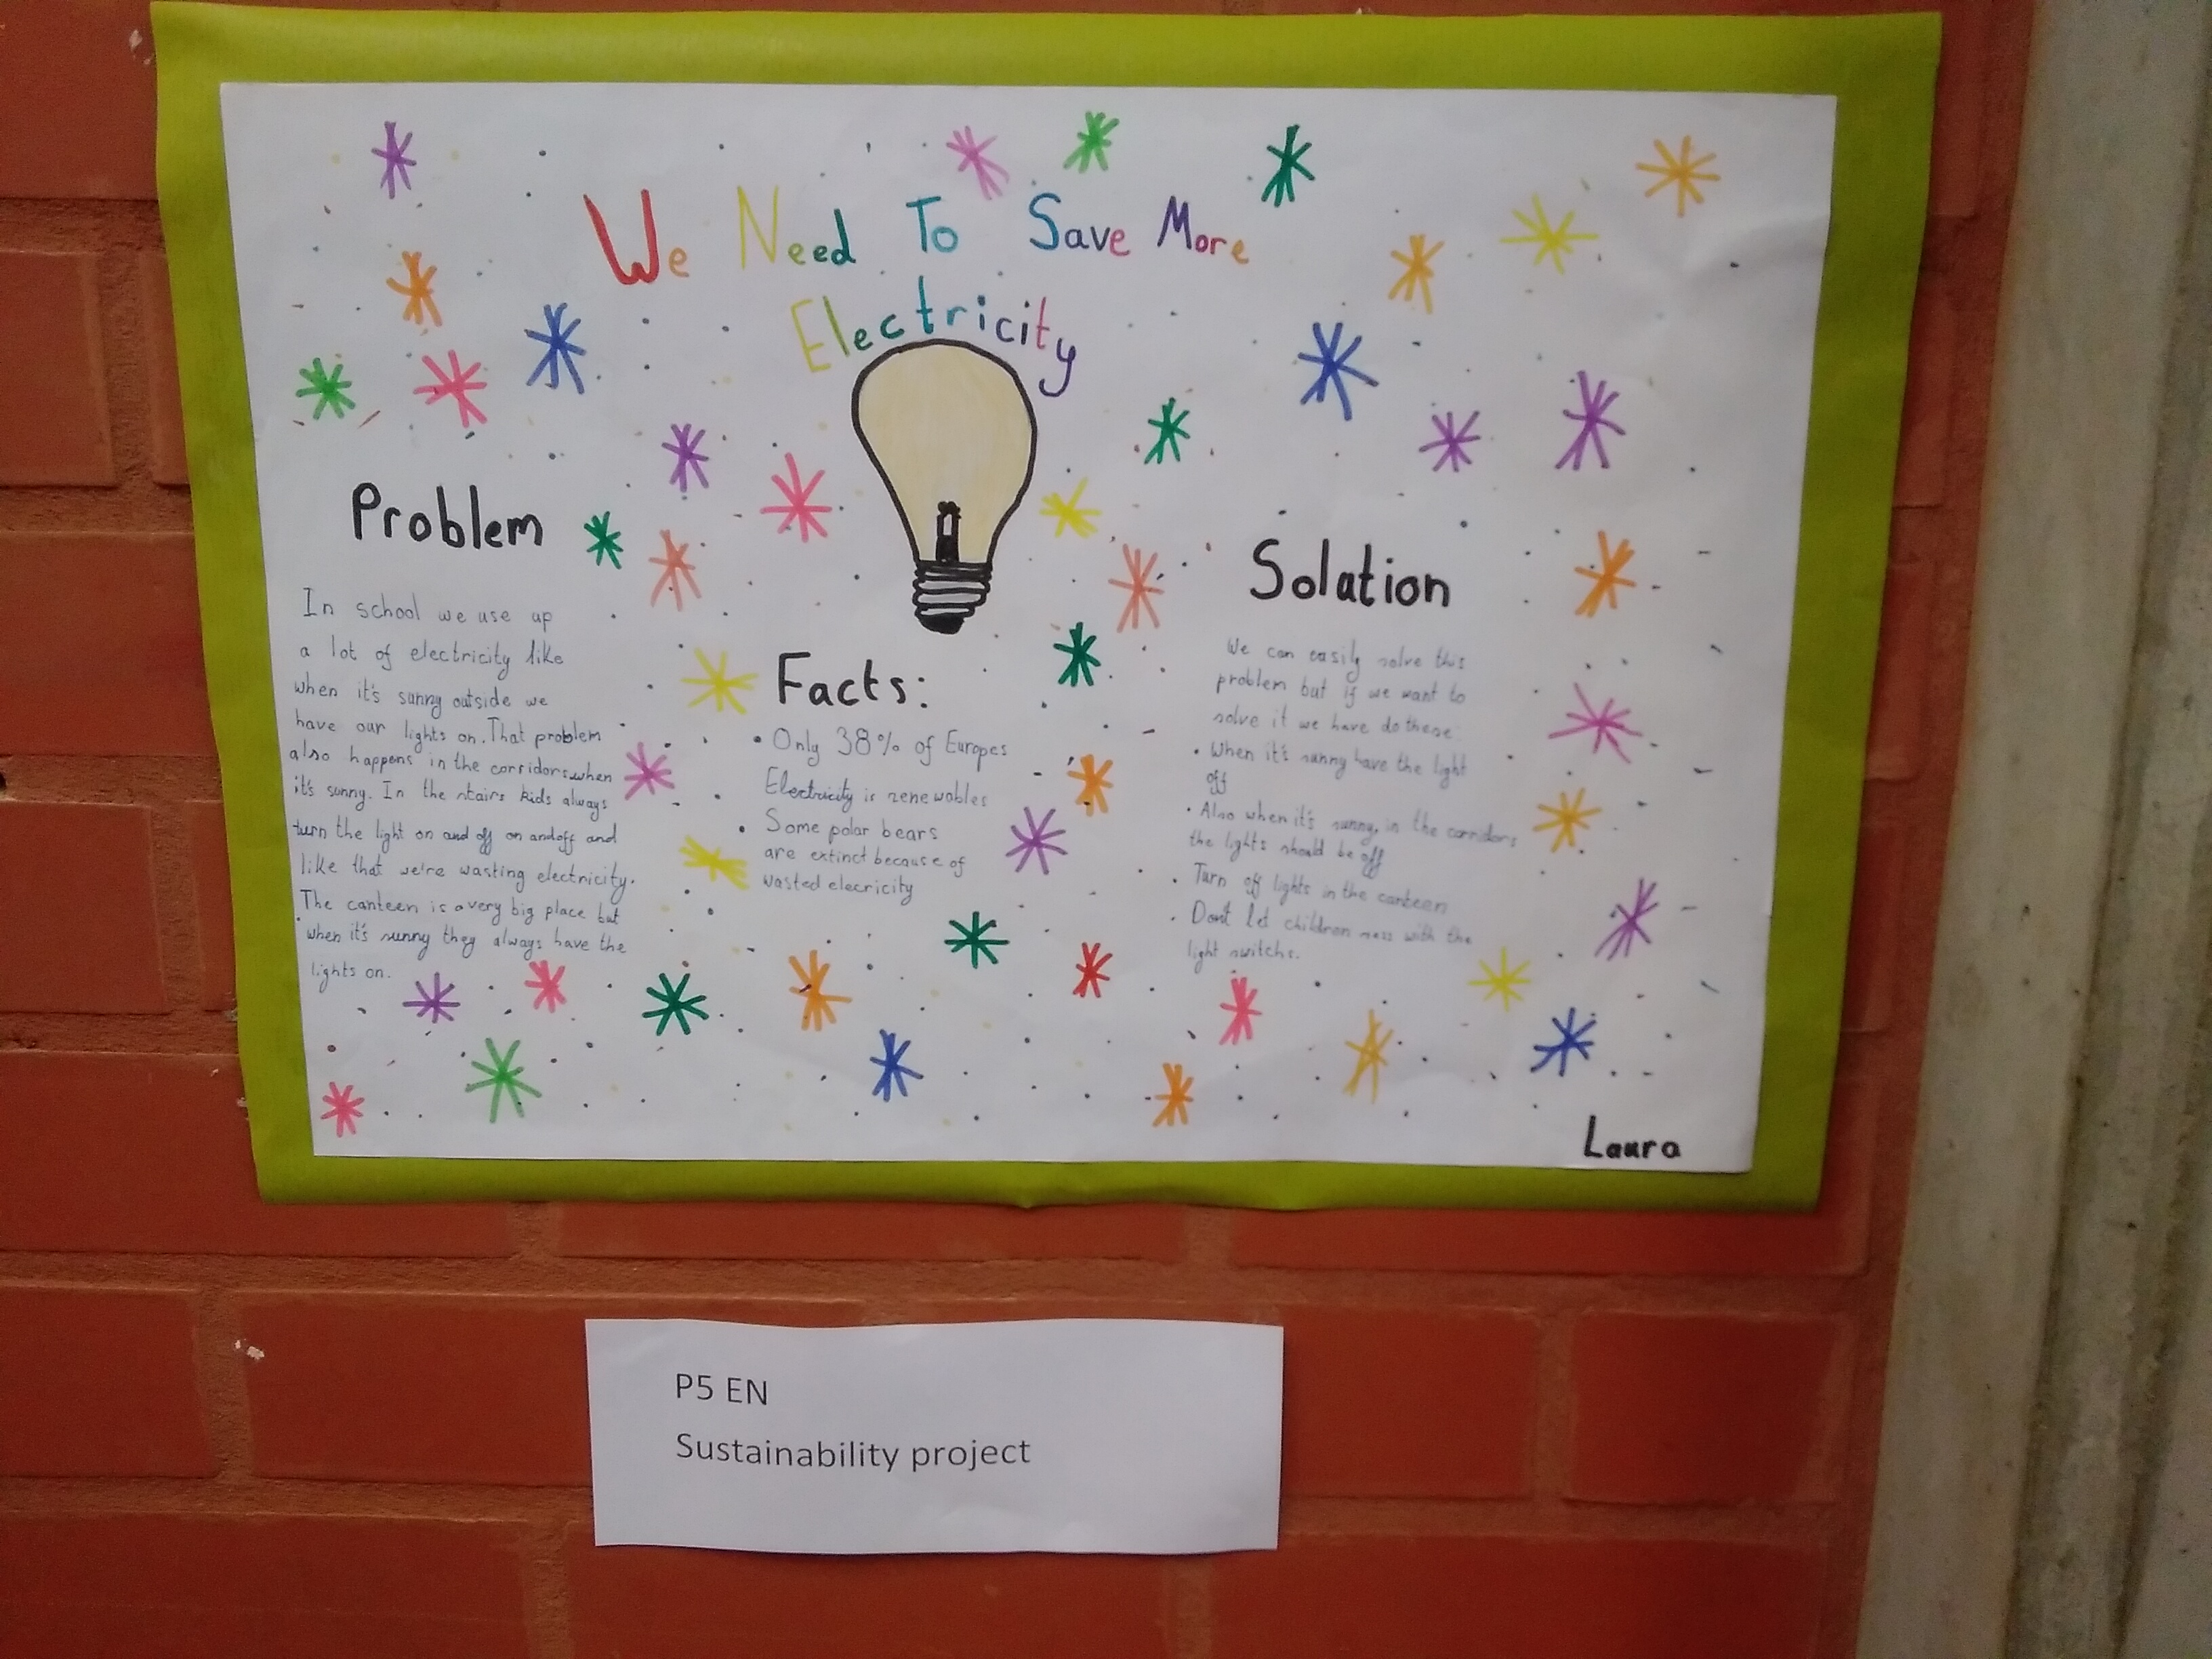 We Need To Save More
Electricity
Problem
In school we use up
a lot of electricity like
when it's sunny outside we
have our lights on. That problem
also happens in the corridors when
it's sunny. In the stairs kids always
turn the light on and off on and off and
like that we're wasting electricity.
The canteen is a very big place but
when it's sunny they always have the
lights on.
Facts:
• Only 38% of Europes
Electricity is renewables
• Some polar bears
are extinct because of
wasted elecricity
Solation
We can easily solve this
problem but if we want to
solve it we have do these:
• When it's sunny have the light
off
• Also when it's sunny, in the corridors
the lights should be off
• Turn off lights in the canteen
• Don't let children mess with the
light switchs.
Laura
P5 EN
Sustainability project